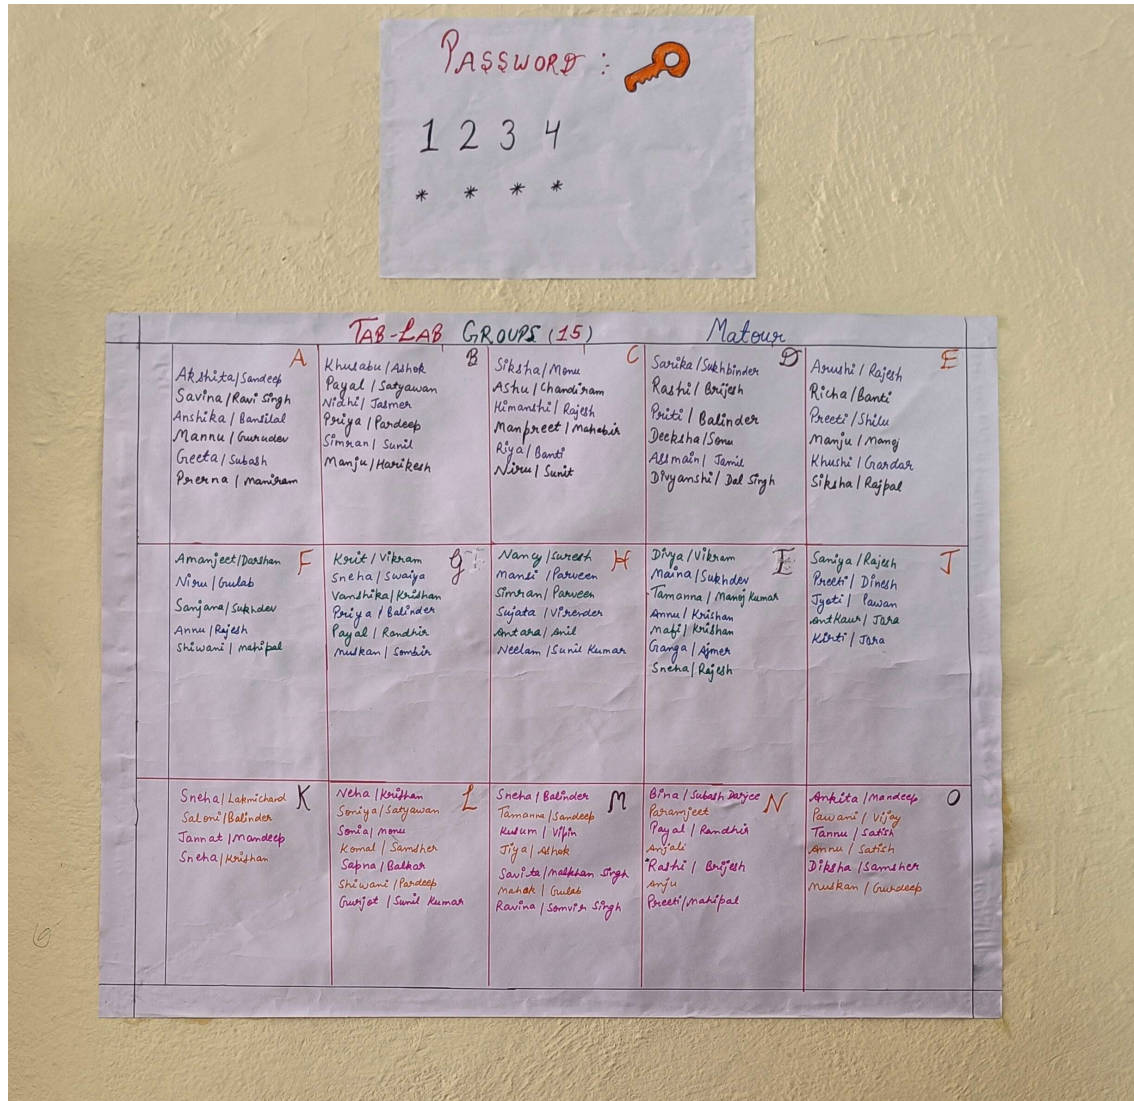 PASSWORD :
1 2 3 4
* * * *
TAB-LAB GROUPS (15) Matour
A
Akshita/Sandeep
Savina/Ravi Singh
Anshika/Bansilal
Mannu/Gurudev
Geeta/Subash
Prerna/Maniram
B
Khusabu/Ashok
Payal/Satyawan
Nidhi/Jasmer
Priya/Pardeep
Simran/Sunil
Manju/Harikesh
C
Siksha/Monu
Ashu/Chandiram
Himanshi/Rajesh
Manpreet/Mahabir
Riya/Banti
Niru/Sunit
D
Sarika/Sukhbinder
Rashi/Brijesh
Priti/Balinder
Deeksha/Sonu
Assmain/Jamil
Divyanshi/Dal Singh
E
Arushi/Rajesh
Richa/Banti
Preeti/Shilu
Manju/Manoj
Khushi/Gardar
Siksha/Rajpal
F
Amanjeet/Darshan
Niru/Gulab
Sanjana/Sukhdev
Annu/Rajesh
Shiwani/Mahipal
G
Krit/Vikram
Sneha/Swaiya
Vanshika/Krishan
Priya/Balinder
Payal/Randhir
Muskan/Sombir
H
Nancy/Suresh
Mansi/Parveen
Simran/Parveen
Sujata/Virender
Antara/Anil
Neelam/Sunil Kumar
I
Divya/Vikram
Maina/Sukhdev
Tamanna/Manoj Kumar
Annu/Krishan
Mafi/Krishan
Ganga/Ajmer
Sneha/Rajesh
J
Saniya/Rajesh
Preeti/Dinesh
Jyoti/Pawan
AntKaur/Jora
Kirti/Jora
K
Sneha/Lakmichand
Saloni/Balinder
Jannat/Mandeep
Sneha/Krishan
L
Neha/Krishan
Soniya/Satyawan
Sonia/Monu
Komal/Samsher
Sapna/Balkar
Shiwani/Pardeep
Gurjot/Sunil Kumar
M
Sneha/Balinder
Tamanna/Sandeep
Kusum/Vipin
Jiya/Ashok
Savita/Malkhan Singh
Mahak/Gulab
Ravina/Somvir Singh
N
Bina/Subash Darjee
Paramjeet
Payal/Randhir
Anjali
Rashi/Brijesh
Anju
Preeti/Mahipal
O
Ankita/Mandeep
Pawani/Vijay
Tannu/Satish
Annu/Satish
Diksha/Samsher
Muskan/Gurdeep